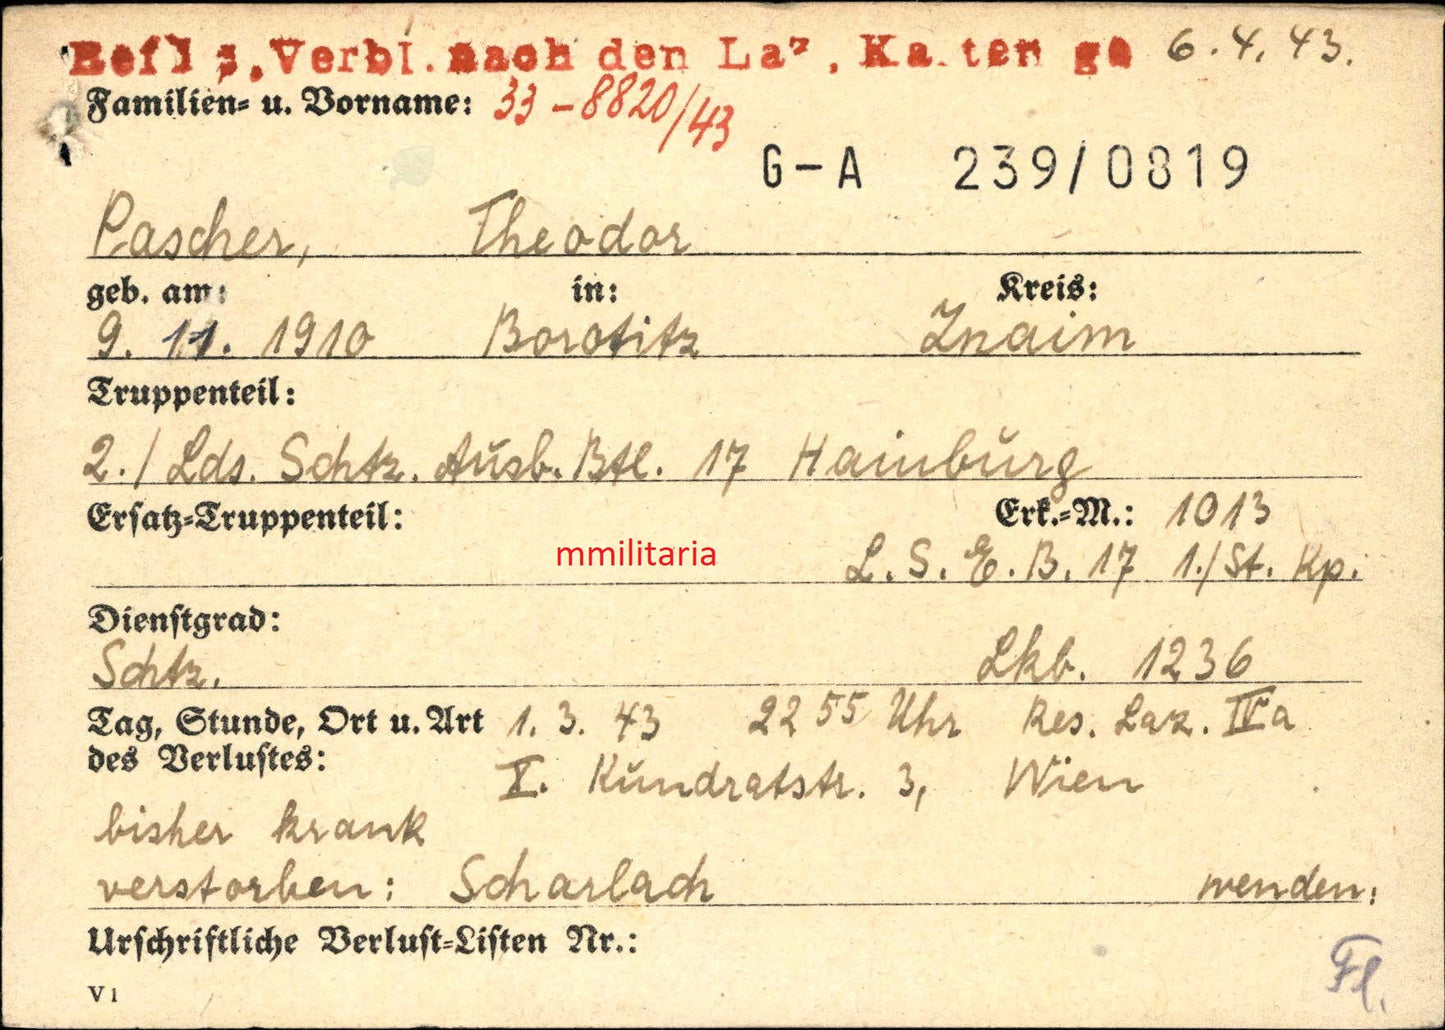 s. Verbl. nach den Laz. Karten 6.4.43.
Familien- u. Vorname: 33-8820/43
G-A 239/0819
Pascher, Theodor
geb. am: in: Kreis:
9. 11. 1910 Borotitz Znaim
Truppenteil:
2./Lds. Schtz. Ausb. Btl. 17 Hainburg
Ersatz-Truppenteil: Erk.-M.: 1013
mmilitaria
L.S.E.B. 17 1./St. Kp.
Dienstgrad:
Schtz. Lkb. 1236
Tag, Stunde, Ort u. Art 1. 3. 43 22 55 Uhr Res. Laz. IVa
des Verlustes: X. Kundratstr. 3, Wien
bisher krank
verstorben: Scharlach wenden:
Urschriftliche Verlust-Listen Nr.:
V 1